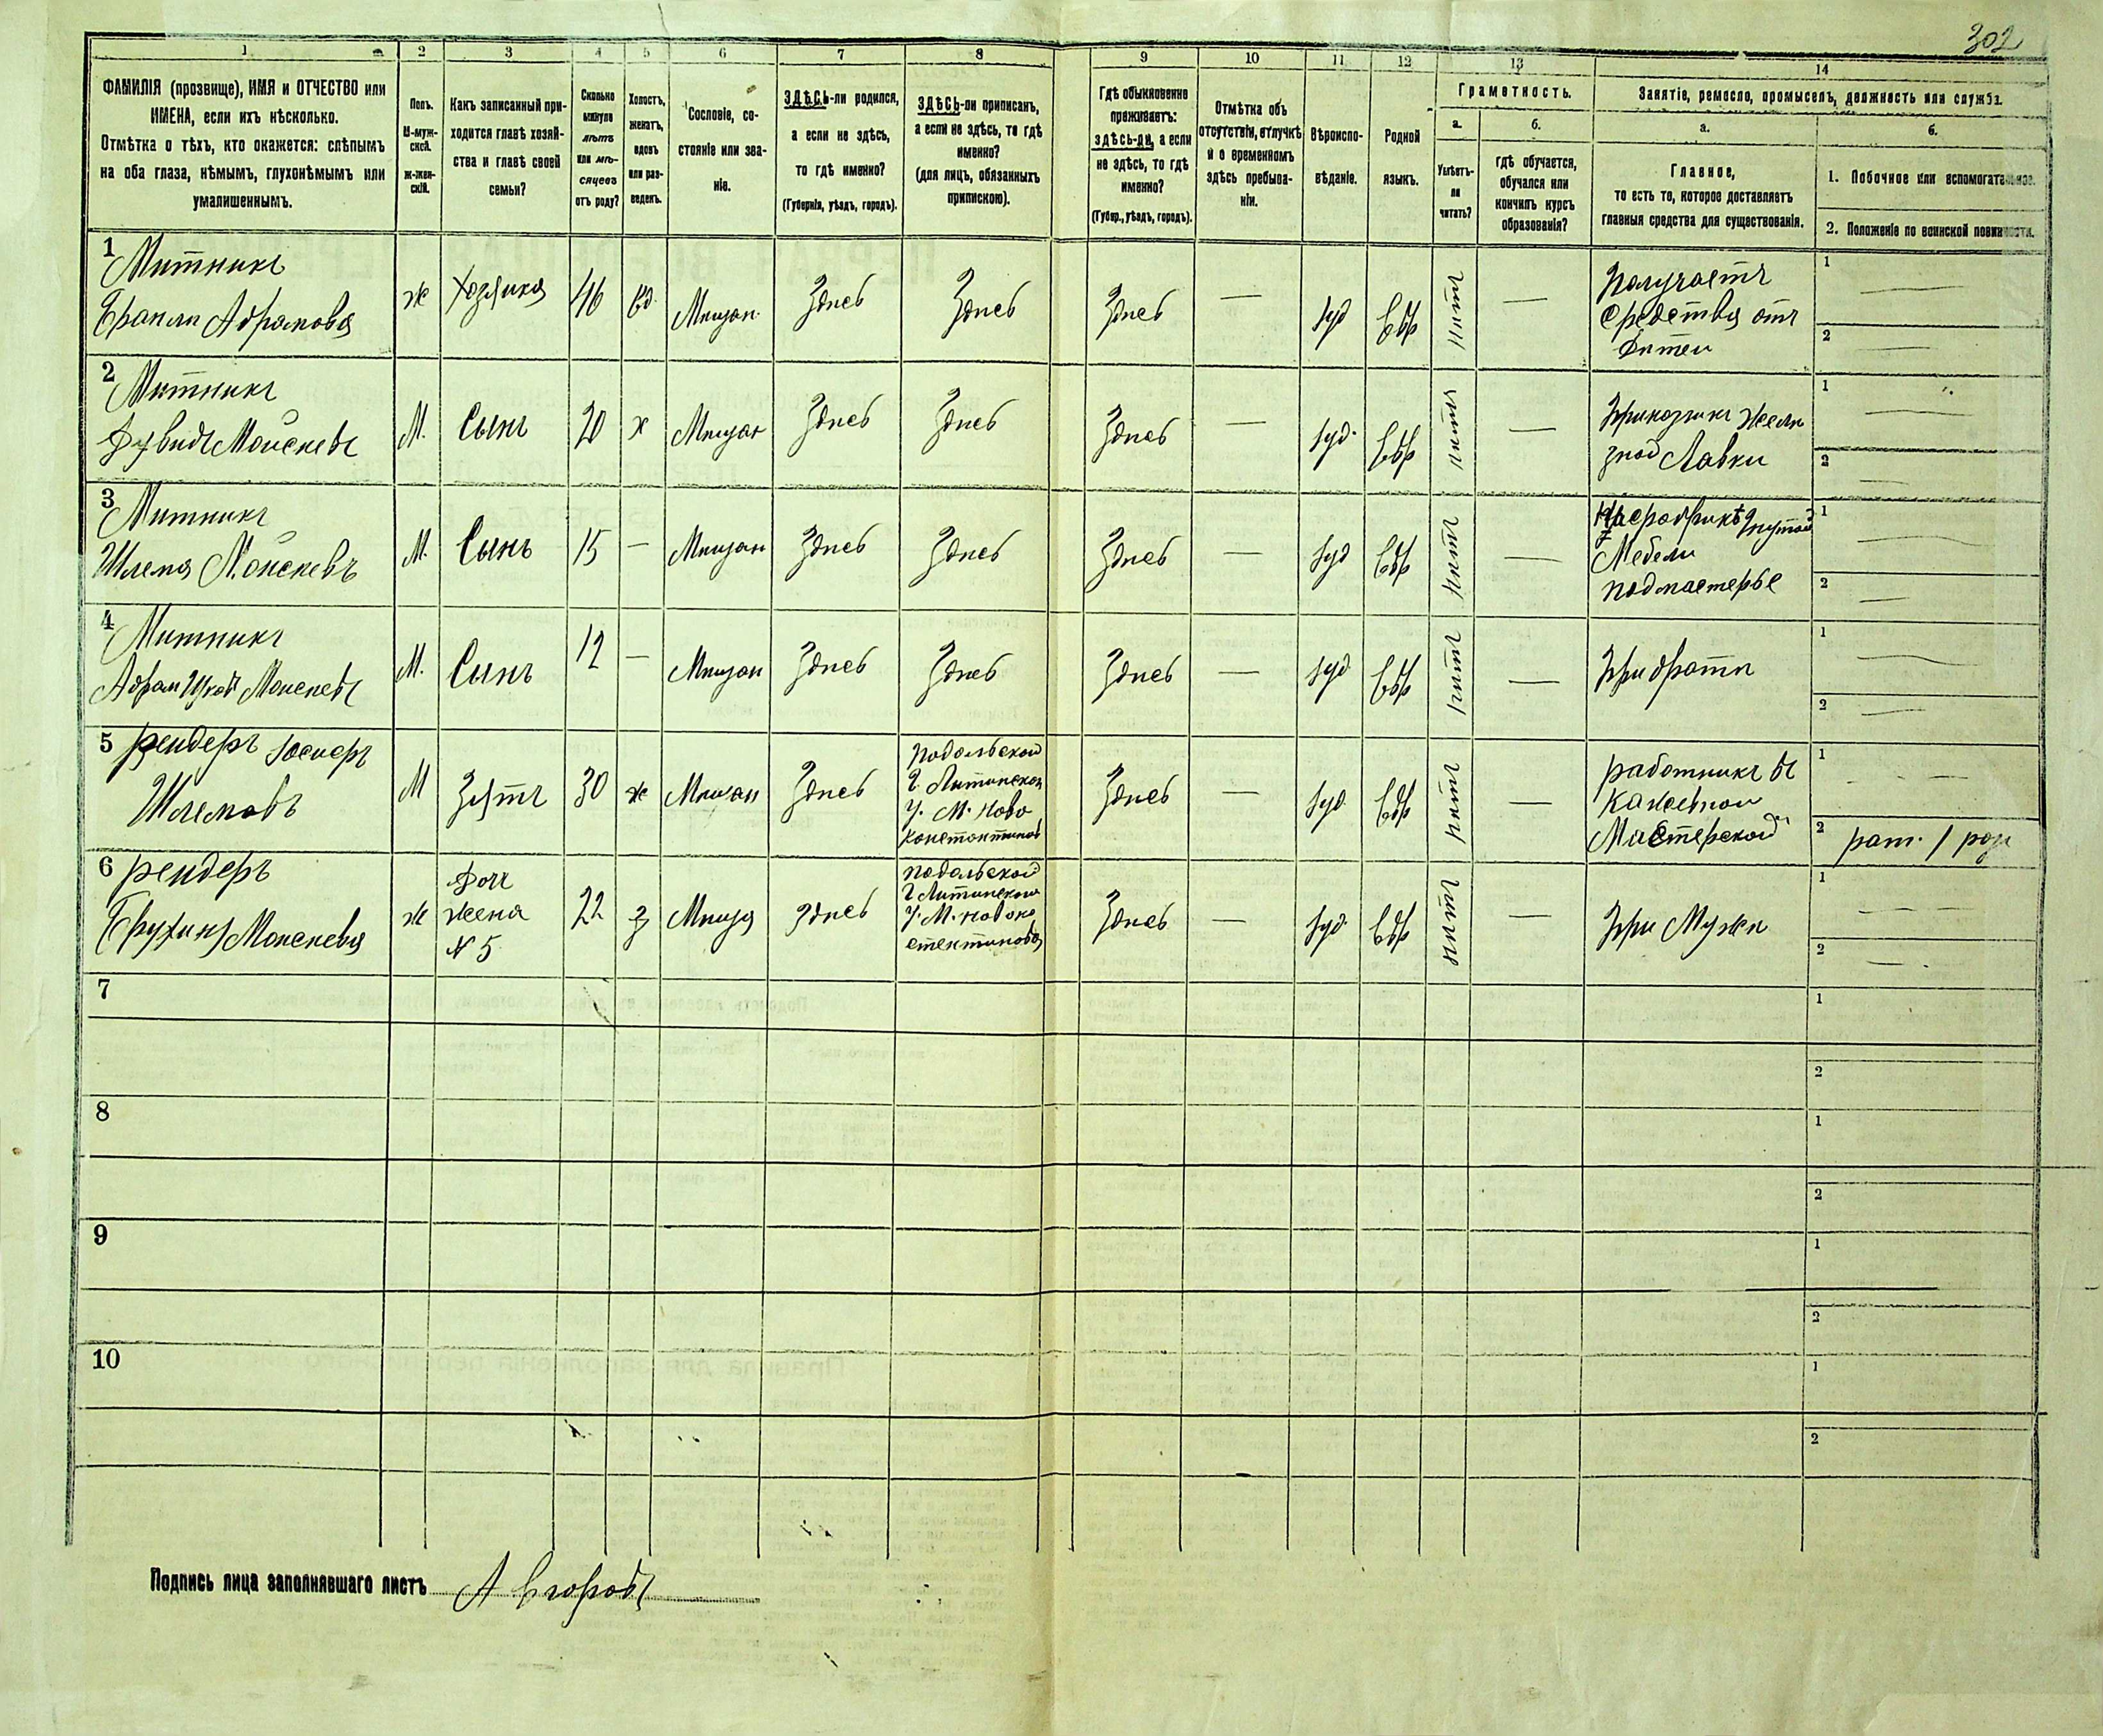 302
1 2 3 4 5 6 7 8 9 10 11 12 13 14
ФАМИЛІЯ (прозвище), ИМЯ и ОТЧЕСТВО или
ИМЕНА, если ихъ нѣсколько.
Отмѣтка о тѣхъ, кто окажется: слѣпымъ
на оба глаза, нѣмымъ, глухонѣмымъ или
умалишеннымъ.
Полъ.
М-муж-
ской.
ж-жен-
скій.
Какъ записанный при-
ходится главѣ хозяй-
ства и главѣ своей
семьи?
Сколько
минуло
лѣтъ
или мѣ-
сяцевъ
отъ роду?
Холостъ,
женатъ,
вдовъ
или раз-
веденъ.
Сословіе, со-
стояніе или зва-
ніе.
ЗДѢСЬ-ли родился,
а если не здѣсь,
то гдѣ именно?
(Губернія, уѣздъ, городъ).
ЗДѢСЬ-ли приписанъ,
а если не здѣсь, то гдѣ
именно?
(для лицъ, обязанныхъ
припискою).
Гдѣ обыкновенно
проживаетъ:
здѣсь-ли, а если
не здѣсь, то гдѣ
именно?
(Губер., уѣздъ, городъ).
Отмѣтка объ
отсутствіи, отлучкѣ
и о временномъ
здѣсь пребыва-
ніи.
Вѣроиспо-
вѣданіе.
Родной
языкъ.
Грамотность.
а.
Умѣетъ-
ли
читать?
б.
гдѣ обучается,
обучался или
кончилъ курсъ
образованія?
Занятіе, ремесло, промыселъ, должность или служба.
а.
Главное,
то есть то, которое доставляетъ
главныя средства для существованія.
б.
1. Побочное или вспомогательное.
2. Положеніе по воинской повинности.
1 Митникъ
Абрамова
ж Хозяика 46 вд. Мѣщан. Здѣсь Здѣсь Здѣсь — Іуд Евр нѣтъ —
Получаетъ
средства отъ
Дѣтеи
1 —
2 —
2 Митникъ
Дувидъ Моисѣевъ
М. Сынъ 20 х Мѣщан Здѣсь Здѣсь Здѣсь — Іуд. Евр нѣтъ —
Приказчикъ желѣ
зной Лавки
1 —
2 —
3 Митникъ
Шлема Моисѣевъ
М. Сынъ 15 — Мѣщан Здѣсь Здѣсь Здѣсь — Іуд Евр нѣтъ —
На фабрикѣ гнутой
Мебели
подмастерье
1 —
2 —
4 Митникъ
Абрам Ицко Моисѣевъ
М. Сынъ 12 — Мѣщан Здѣсь Здѣсь Здѣсь — Іуд Евр нѣтъ —
При братѣ
1 —
2 —
5 рендеръ
Шлемовъ
М Зять 30 ж Мѣщан Здѣсь
Подольской
г. Литинскои
у. М. Ново
константинов
Здѣсь — Іуд. Евр нѣтъ —
работникъ въ
Мастерской
1 —
2 рат. 1 раз
6 рендеръ
Моисѣева
ж
Дочь
жена
№ 5
22 з Мѣща здѣсь
Подольской
г Литинскои
у. М. Новоко
стентинова
Здѣсь — Іуд. Евр нѣтъ —
При Мужѣ
1 —
2 —
7 1
2
8 1
2
9 1
2
10 1
2
Подпись лица заполнявшаго листъ